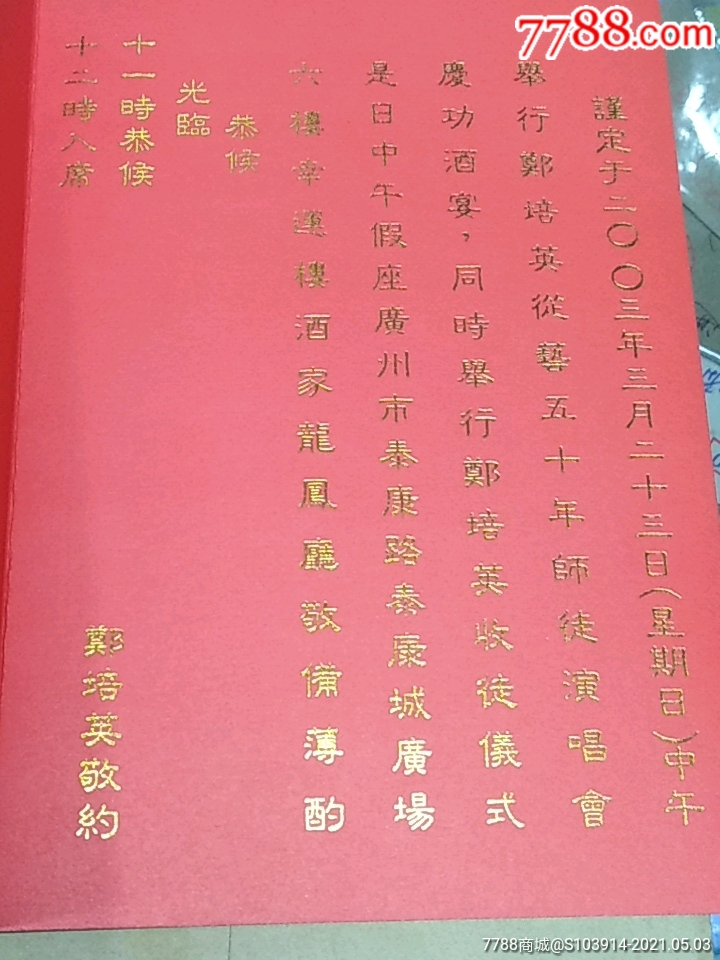 7788.com
謹定于二〇〇三年三月二十三日(星期日)中午
舉行鄭培英從藝五十年師徒演唱會
慶功酒宴，同時舉行鄭培英收徒儀式
是日中午假座廣州市泰康路泰康城廣場
六樓幸運樓酒家龍鳳廳敬備薄酌
恭候
光臨
十一時恭候
十二時入席
鄭培英敬約
7788商城@S103914-2021.05.03